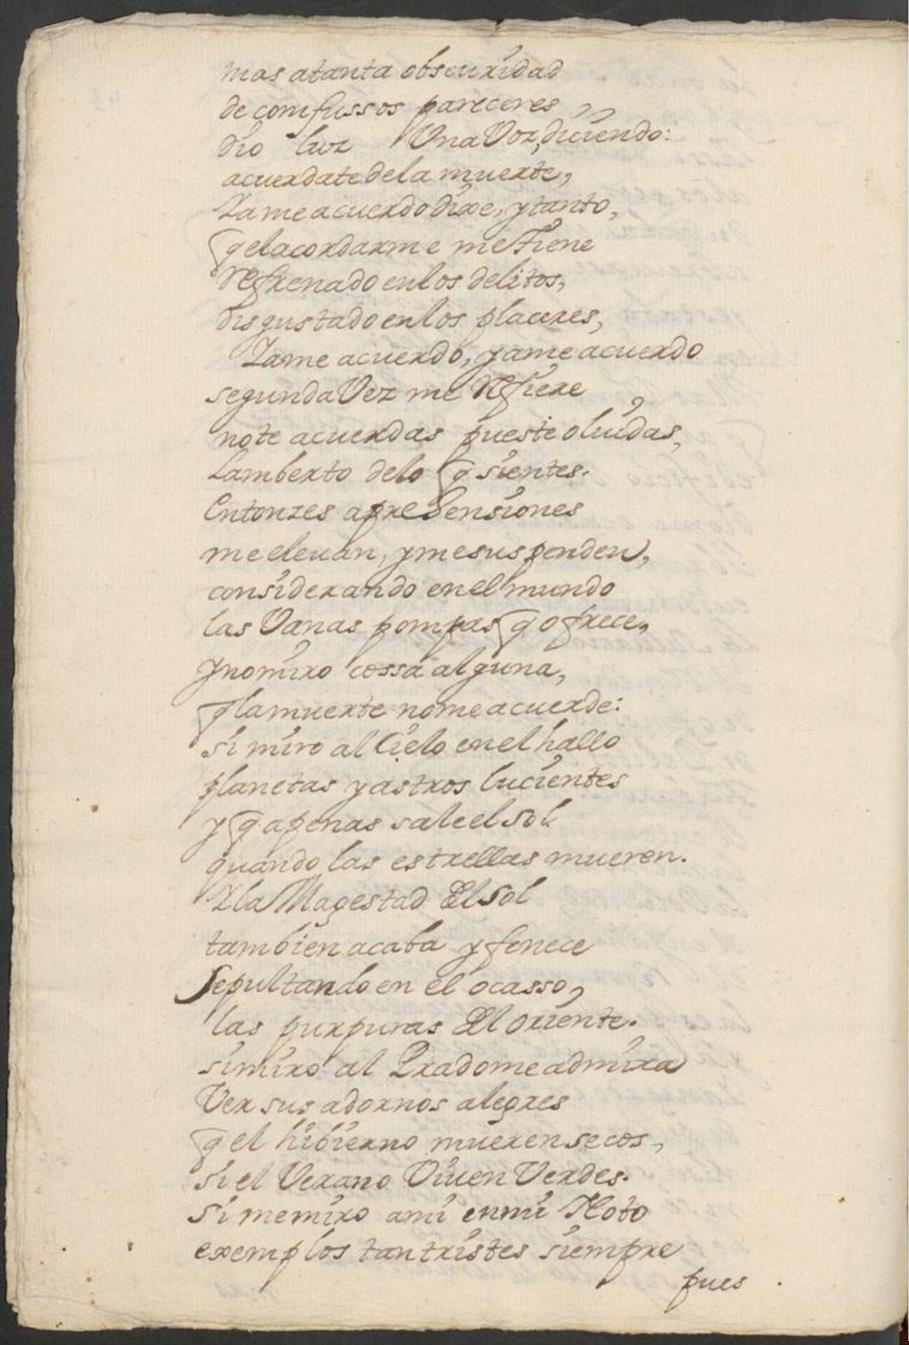 mas atanta obscuridad
de comfussos pareceres,
dio luz Una Voz, diciendo:
acuerdate dela muerte,
Ya me acuerdo dixe, y tanto,
q el acordarme me tiene
refrenado en los delitos,
disgustado en los placeres,
Ya me acuerdo, y a me acuerdo
segunda Vez me refiere,
no te acuerdas pues te oluidas,
Lamberto de lo q sientes.
Entonzes aprehensiones
me eleuan, y me suspenden,
considerando en el mundo
las Vanas pompas q ofrece,
y no miro cossa alguna,
q la muerte no me acuerde:
si miro al Cielo en el hallo
planetas y astros lucientes
y q apenas sale el sol
quando las estrellas mueren.
Y la Magestad El Sol
tambien acaba y fenece
sepultando en el ocasso,
las purpuras El oriente.
si miro al Prado me admira
Ver sus adornos alegres
q el hibierno mueren secos,
si el Verano Viuen Verdes.
Si me miro a mi en mi Noto
exemplos tan tristes siempre
pues